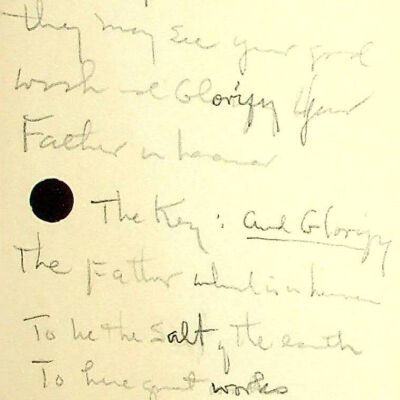 they may see your good
works and Glorify Your
Father in heaven
The Key: and Glorify
The Father which is in heaven
To be the Salt of the earth
To have great works